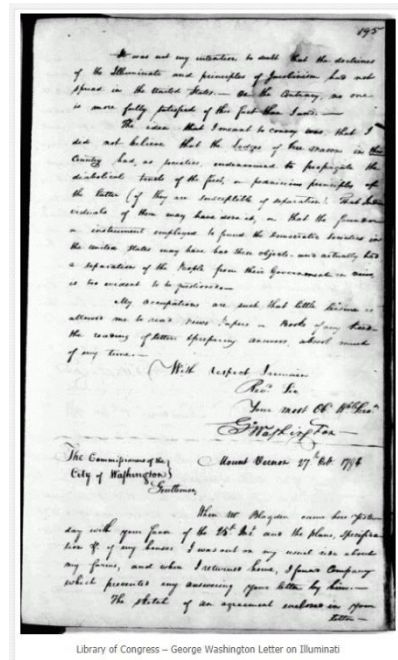 195
It was not my intention to doubt that the doctrines
of the Illuminati and principles of Jacobinism had not
spread in the United States. — On the contrary, no one
is more fully satisfied of this fact than I am. —
The idea that I meant to convey was, that I
did not believe that the Lodges of Free Masons in this
Country had, as Societies, endeavoured to propagate the
diabolical tenets of the first, or pernicious principles of
the latter (if they are susceptible of separation). That Indi-
viduals of them may have done it, or that the founder
or instrument employed to found, the Democratic Societies in
the United States may have had these objects — and actually had
a separation of the People from their Government in view,
is too evident to be questioned. —
My occupations are such that little leisure is
allowed me to read News Papers or Books of any kind;
the reading of letters & preparing answers, absorb much
of my time. —
With respect I remain
Revd. Sir
Your most Ob. Hble Servt.
G: Washington
The Commissioners of the
City of Washington
Mount Vernon 27th Oct 1798
Gentlemen,
When Mr. Blagden came here yester
day with your favor of the 25th Inst. and the plans, specifica
tion &c. of my houses I was out on my usual ride about
my farms, and when I returned home, I found Company
which prevented my answering your letter by him. —
The Sketch of an agreement enclosed in your
letter —
Library of Congress – George Washington Letter on Illuminati